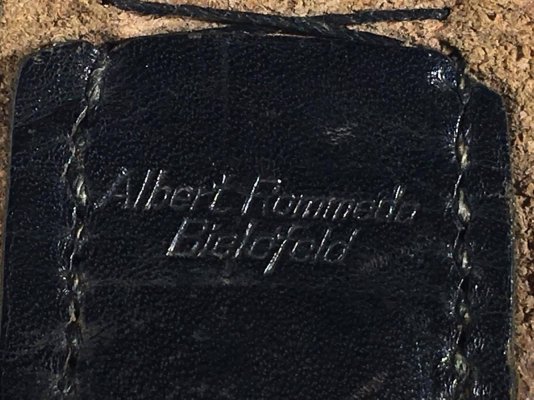 Albert Rommeda
Bielefeld